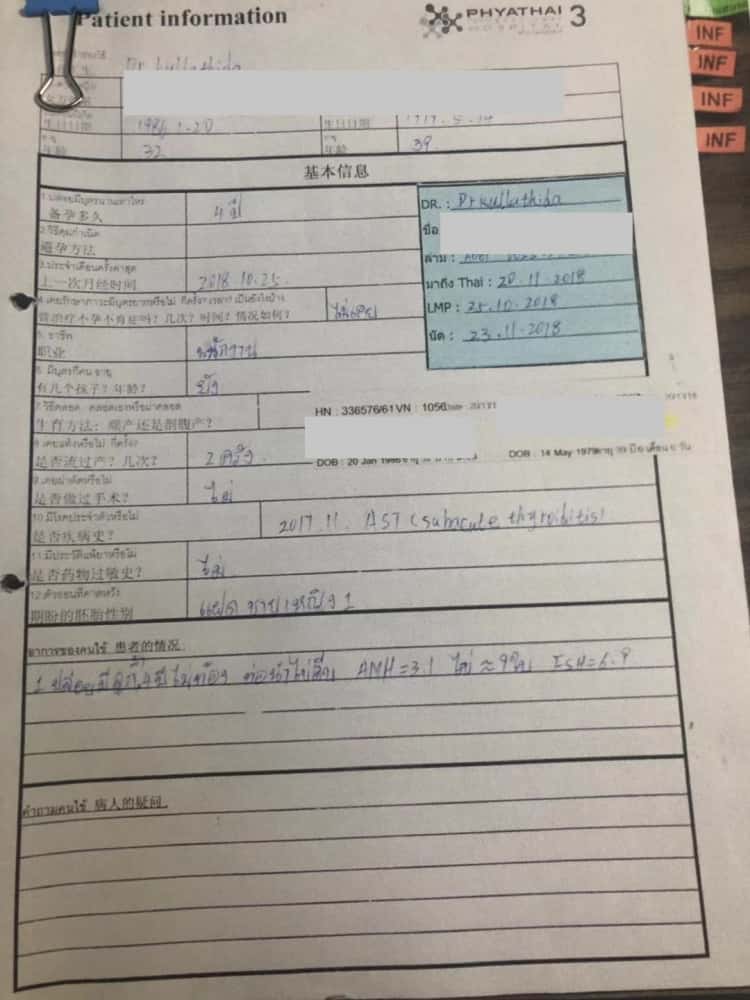 Patient information
PHYATHAI 3
INF
INF
INF
INF
Dr kullathida
生日日期 1986.1.20 生日日期
年龄 32 年龄 39
基本信息
1.ปล่อยมีบุตรนานเท่าไหร่
备孕多久 4 ปี
2.วิธีคุมกำเนิด
避孕方法
3.ประจำเดือนครั้งล่าสุด
上一次月经时间 2018.10.25.
DR. : Dr kullathida
ชื่อ
ล่าม :
มาถึง Thai : 20.11.2018
LMP : 25.10.2018
นัด : 23.11.2018
4.เคยรักษาภาวะมีบุตรยากหรือไม่ กี่ครั้ง?เวลา? เป็นยังไงบ้าง
曾治疗不孕不育症吗？几次？时间？情况如何？ ไม่เคย
5. อาชีพ
职业 พนักงาน
6. มีบุตรกี่คน อายุ
有几个孩子？年龄？ ยัง
7.วิธีคลอด คลอดเองหรือผ่าคลอด
生育方法：顺产还是剖腹产？
HN : 336576/61 VN : 1056
DOB : 20 Jan 1986
DOB : 14 May 1979 อายุ 39 ปี 6 เดือน 6 วัน
8.เคยแท้งหรือไม่ กี่ครั้ง?
是否流过产？几次？ 2 ครั้ง
9.เคยผ่าตัดหรือไม่
是否做过手术？ ไม่
10.มีโรคประจำตัวหรือไม่
是否疾病史？ 2017.11. AST (subacule thyroibitis)
11.มีประวัติแพ้ยาหรือไม่
是否药物过敏史？ ไม่
12.ตัวอ่อนที่คาดหวัง
期盼的胚胎性别 แฝด ชาย หญิง 1
อาการของคนไข้ 患者的情况
1 ปล่อยมีลูก 4 ปี ไม่ท้อง ท่อนำไข่ตีบ AMH = 3.1 ไข่ ≈ 9 ใบ FSH = 6.9
คำถามคนไข้ 病人的疑问